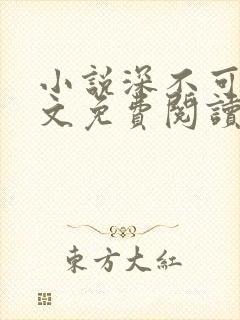 小說深不可
文免費閱讀
東方大紅